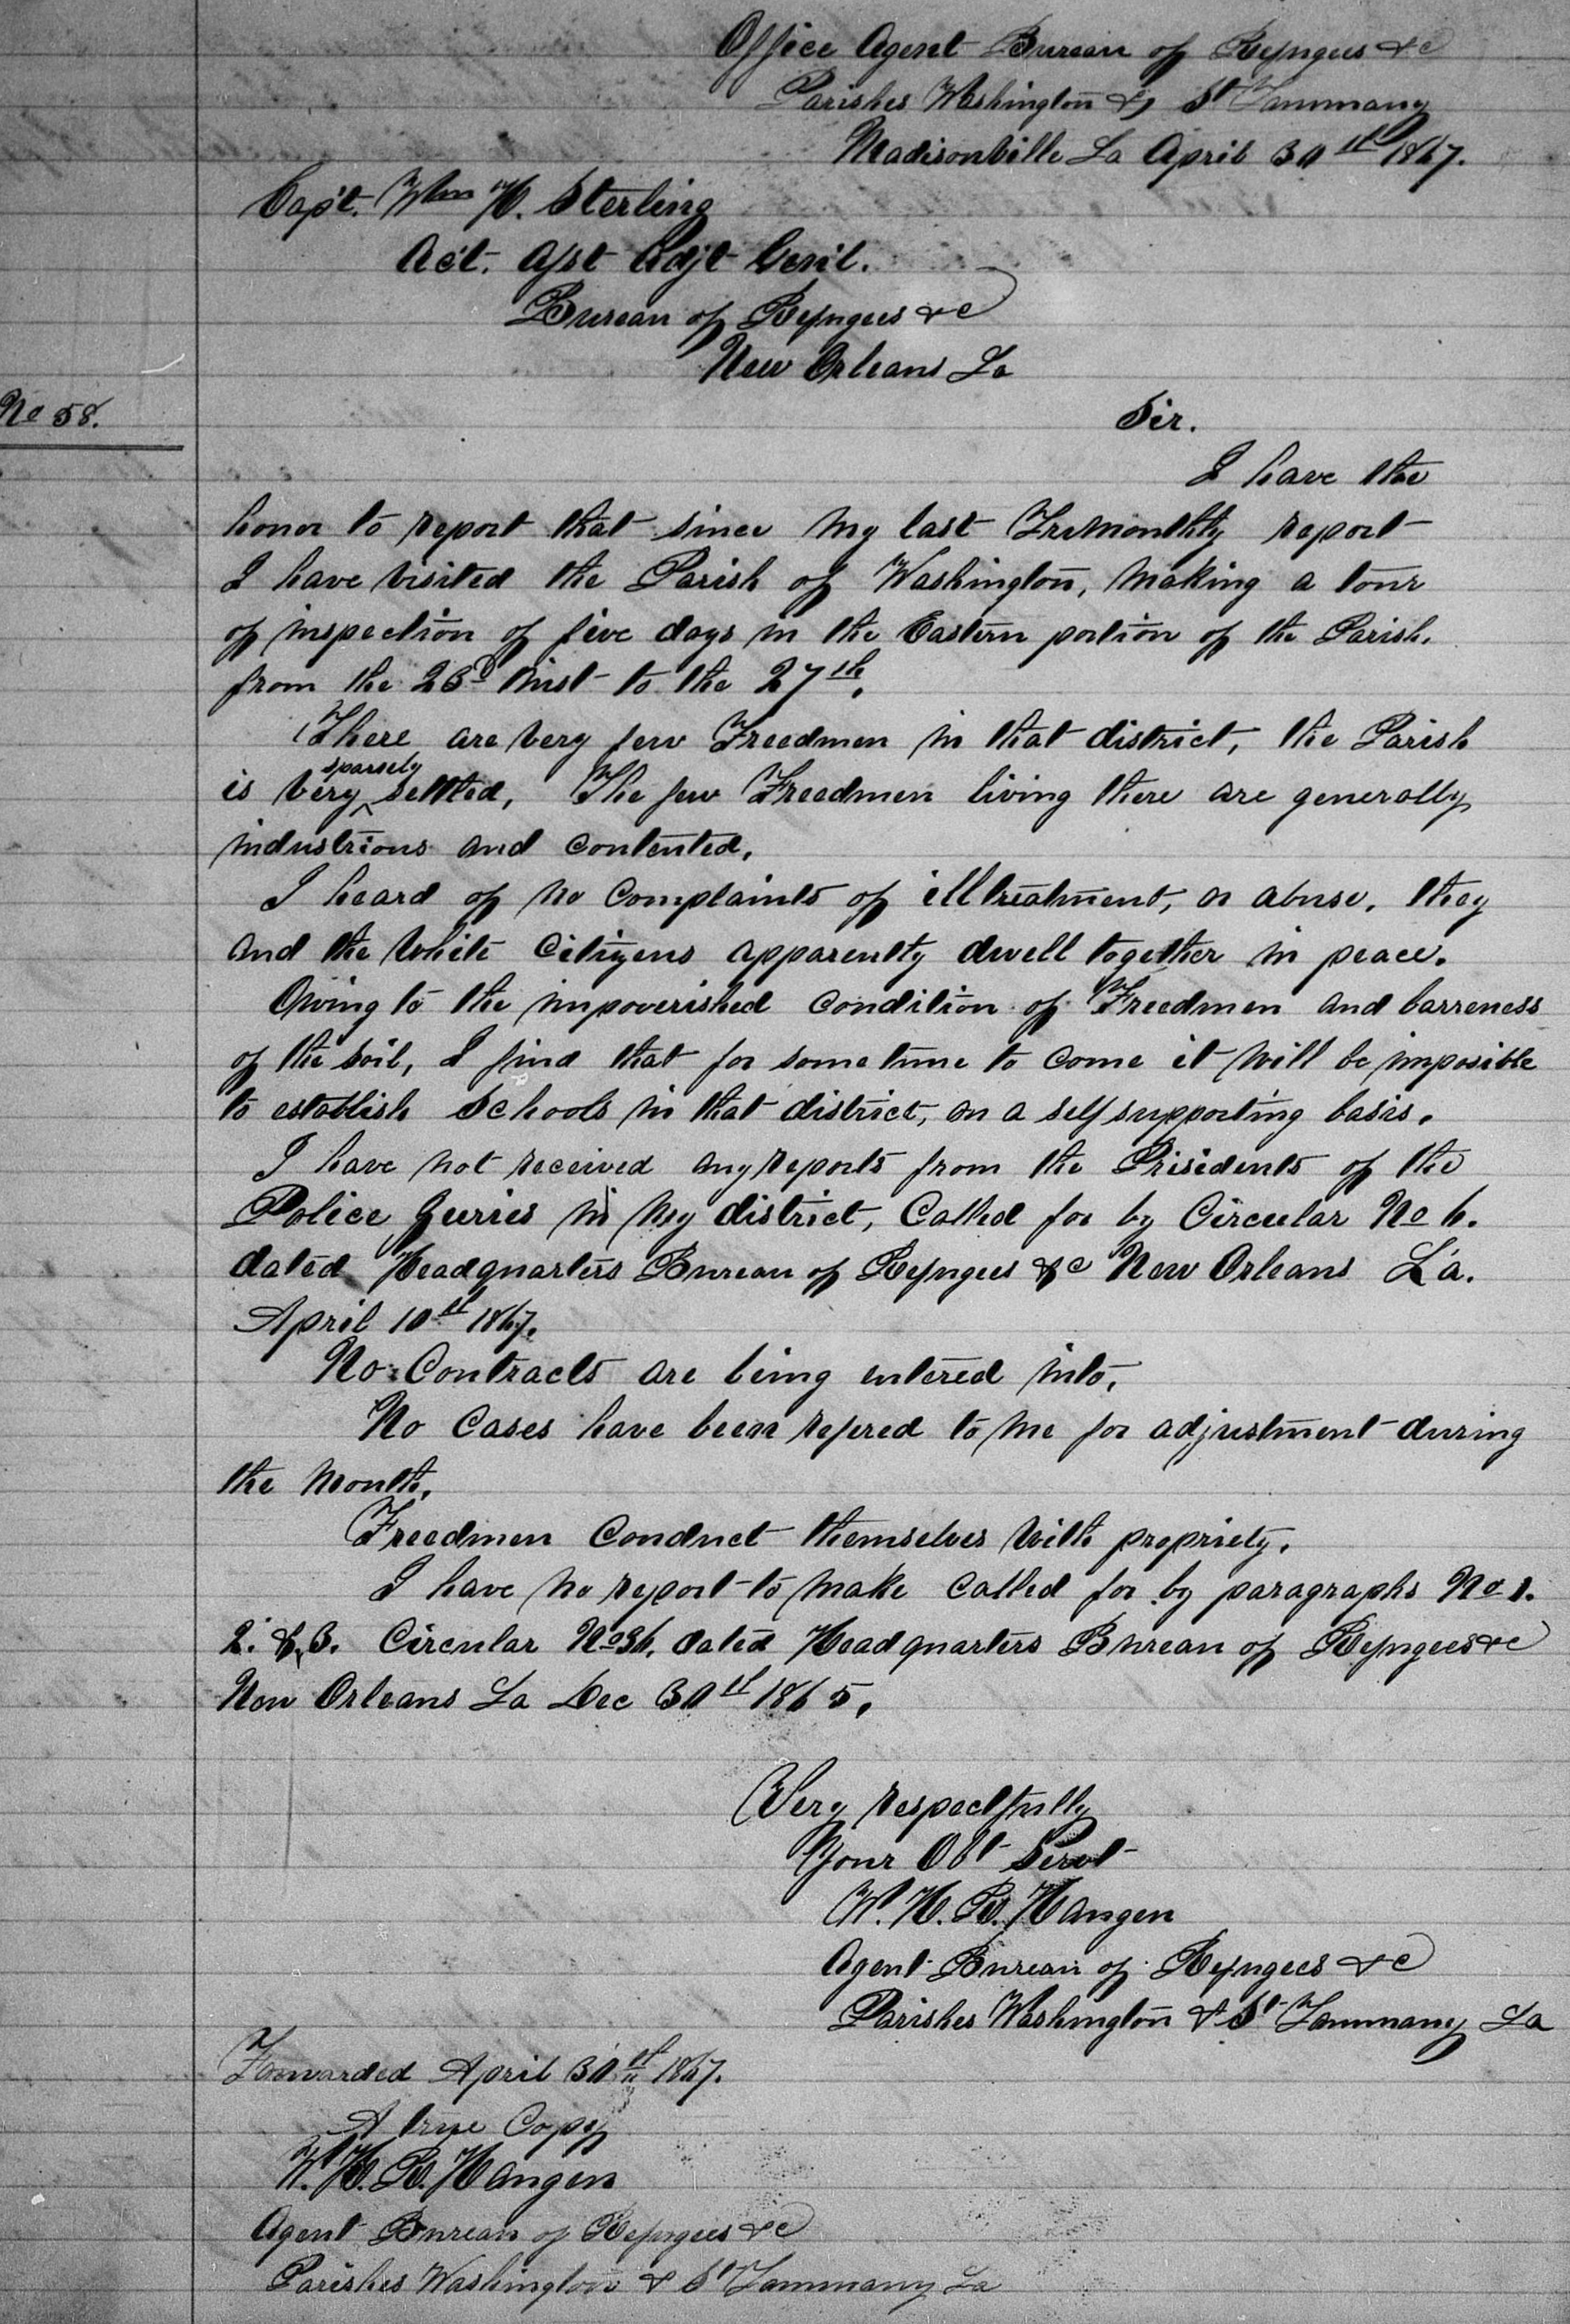 Office Agent Bureau of Refugees &c
Parishes Washington & St Tammany
Madisonville La April 30th 1867.
Capt. Wm H. Sterling
Act. Asst Adjt Genl.
Bureau of Refugees &c
New Orleans La
No 58.
Sir.
I have the
honor to report that since my last Trimonthly report
I have visited the Parish of Washington, making a tour
of inspection of five days in the Eastern portion of the Parish.
from the 23d inst to the 27th.
There are very few Freedmen in that district, the Parish
is very sparsely settled, The few Freedmen living there are generally
industrious and contented.
I heard of no complaints of illtreatment, or abuse. they
and the white Citizens apparently dwell together in peace.
Owing to the impoverished condition of Freedmen and barreness
of the soil, I find that for some time to come it will be imposible
to establish Schools in that district, on a self supporting basis.
I have not received any reports from the Prisidents of the
Police Jurries in my district, Called for by Circular No 6.
dated Headquarters Bureau of Refugees &c New Orleans La.
April 10th 1867.
No Contracts are being entered into.
No Cases have been refered to me for adjustment during
the month.
Freedmen Conduct themselves with propriety.
I have no report to make Called for by paragraphs No 1.
2. & 3. Circular No 36. dated Headquarters Bureau of Refugees &c
New Orleans La Dec 30th 1865.
Very respectfully
Your Obt Servt
W. H. R. Hangen
Agent Bureau of Refugees &c
Parishes Washington & St Tammany La
Forwarded April 30th 1867.
A true Copy
W. H. R. Hangen
Agent Bureau of Refugees &c
Parishes Washington & St Tammany La